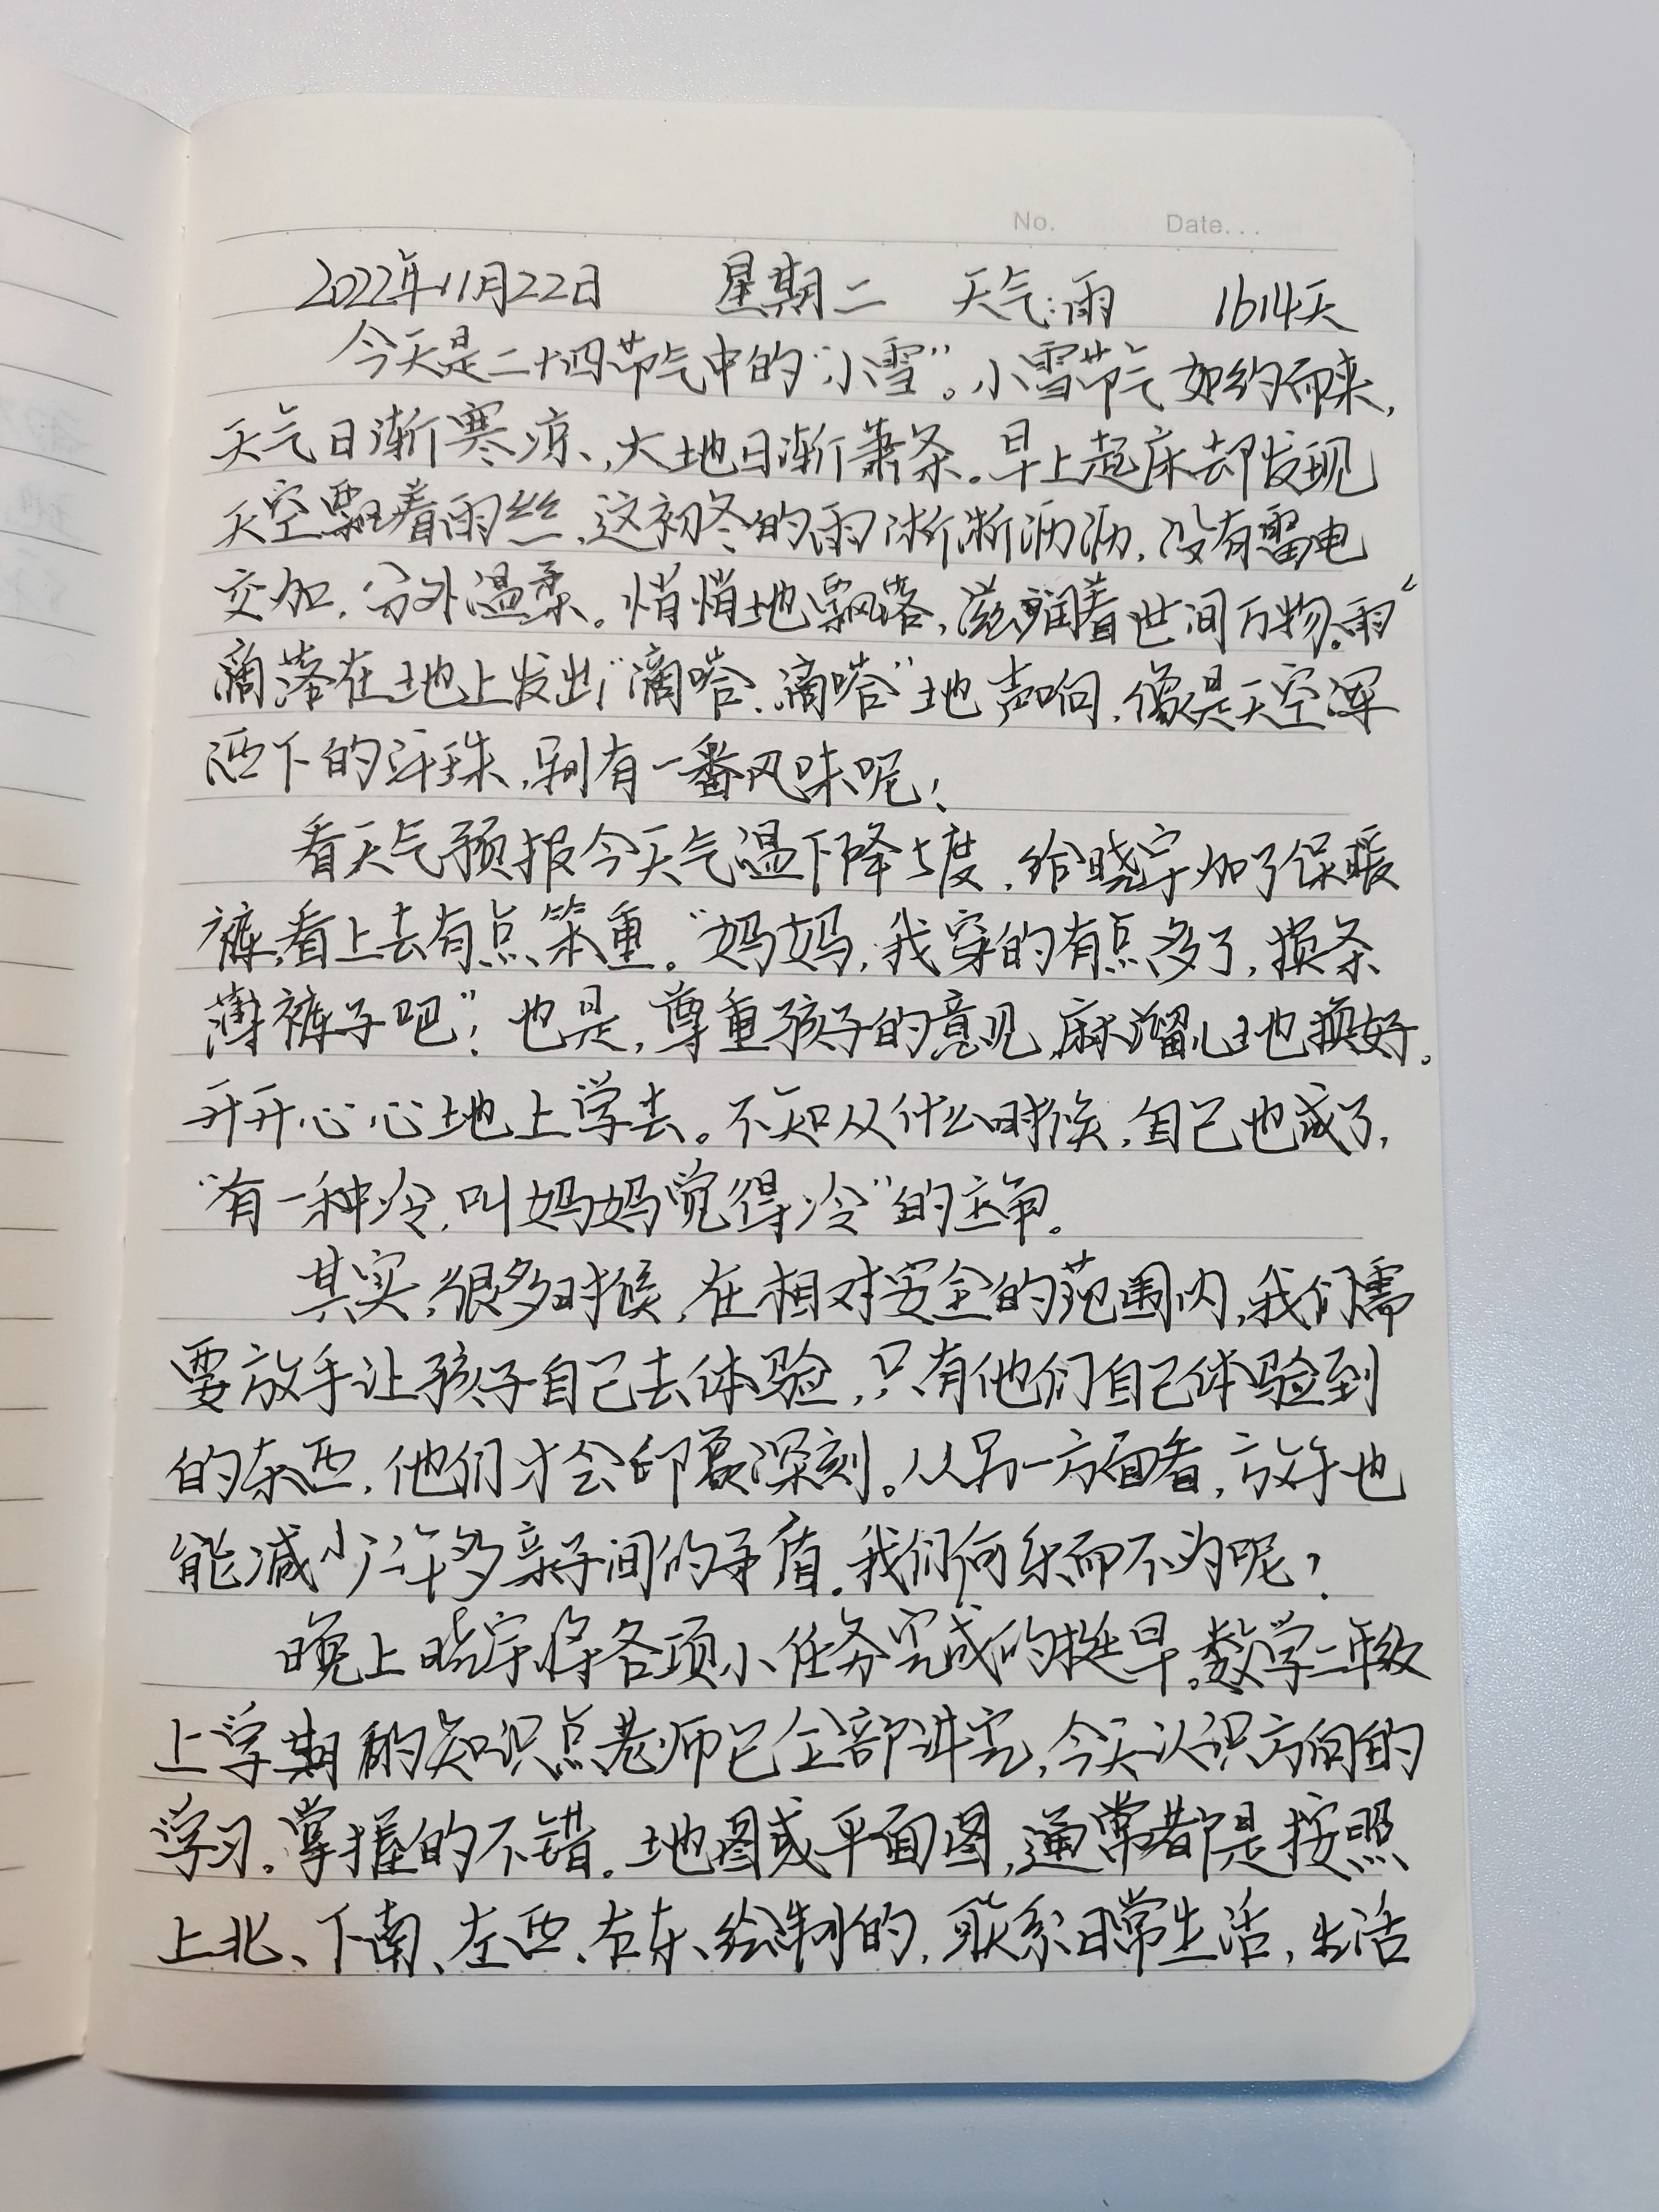 No. Date...
2022年11月22日 星期二 天气:雨 1614天
今天是二十四节气中的“小雪”。小雪节气如约而来,
天气日渐寒凉,大地日渐萧条。早上起床却发现
天空飘着雨丝,这初冬的雨淅淅沥沥,没有雷电
交加,分外温柔。悄悄地飘落,滋润着世间万物。雨
滴落在地上发出“滴嗒、滴嗒”地声响,像是天空挥
洒下的汗珠,别有一番风味呢!
看天气预报今天气温下降5度,给晓宇加了保暖
裤,看上去有点笨重。“妈妈,我穿的有点多了,换条
薄裤子吧”!也是,尊重孩子的意见,麻溜儿地换好。
开开心心地上学去。不知从什么时候,自己也成了,
“有一种冷,叫妈妈觉得冷”的主角。
其实,很多时候,在相对安全的范围内,我们需
要放手让孩子自己去体验,只有他们自己体验到
的东西,他们才会印象深刻。从另一方面看,放手也
能减少许多亲子间的矛盾。我们何乐而不为呢?
晚上晓宇将各项小任务完成的挺早。数学二年级
上学期的知识点老师已全部讲完,今天认识方向的
学习。掌握的不错。地图或平面图,通常都是按照
上北、下南、左西、右东、绘制的,联系日常生活,生活